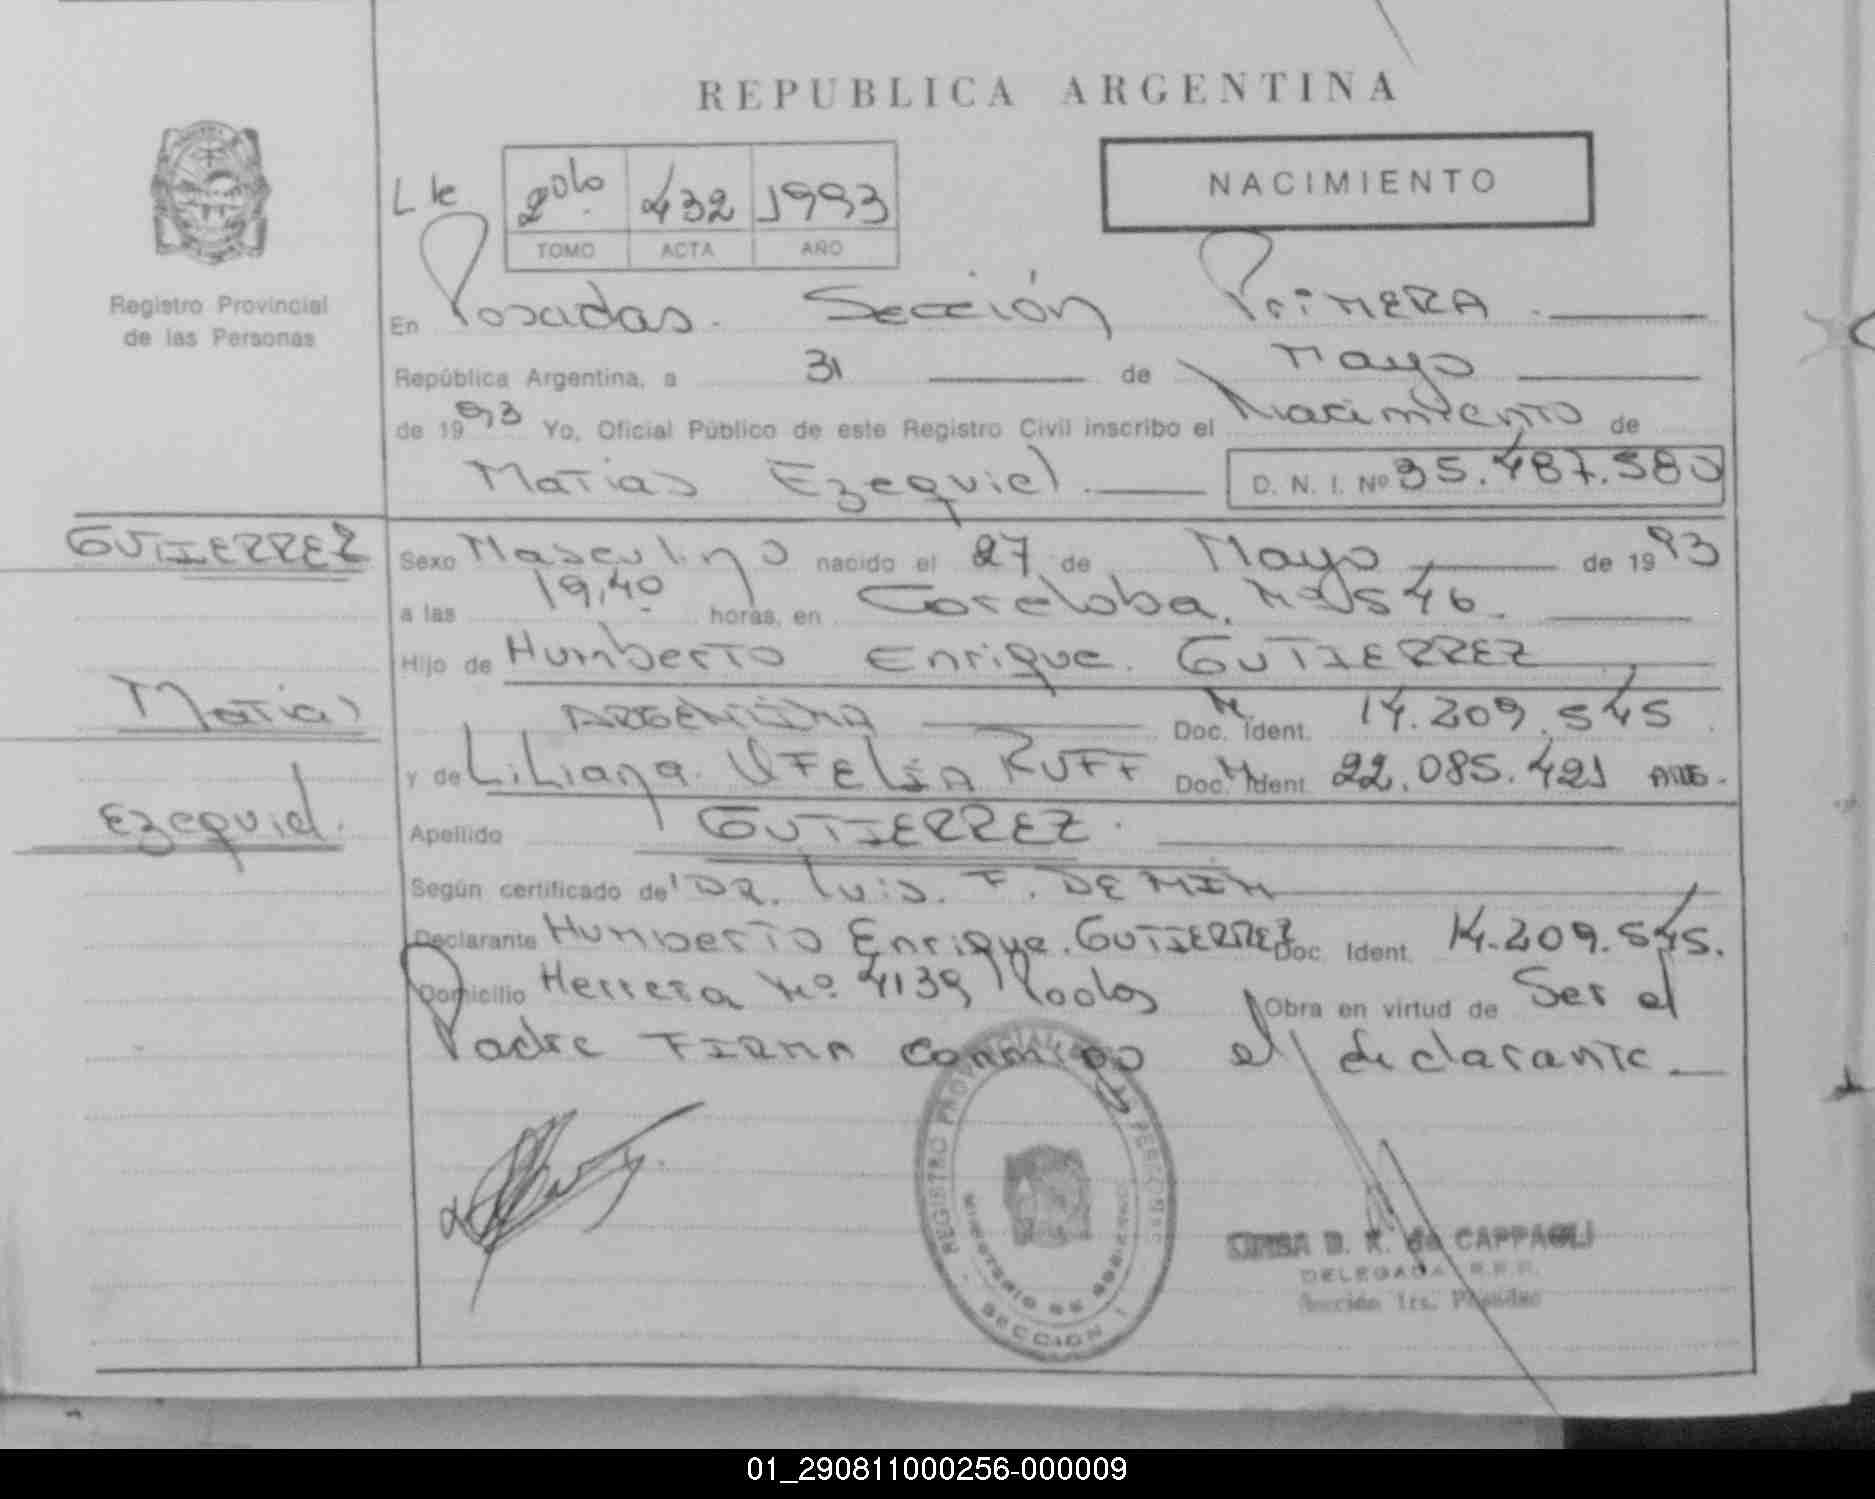 REPUBLICA ARGENTINA
NACIMIENTO
2do 432 1993
TOMO ACTA AÑO
Registro Provincial
de las Personas
En Posadas. Sección PriMERA.
República Argentina, a 31 de Mayo
de 1993 Yo, Oficial Público de este Registro Civil inscribo el Nacimiento de
Matias Ezequiel. D. N. I. Nº 35.487.580
GUTIERREZ
Matias
Ezequiel.
Sexo Masculino nacido el 27 de Mayo de 1993
a las 19,40 horas, en Cordoba. Nº 546.
Hijo de Humberto Enrique. GUTIERREZ
ARGENTINA Doc. Ident. 14.209.545
y de Liliana RUFF Doc. Ident. 22.085.421 ARG.
Apellido GUTIERREZ.
Según certificado de DR. Luis. F. DE MIN
Declarante Humberto Enrique. GUTIERREZ Doc. Ident. 14.209.545.
Domicilio Herrera Nº. 4139 Pdas Obra en virtud de Ser el
Padre FIRMA conmigo el declarante
REGISTRO PROVINCIAL DE LAS PERSONAS
MINISTERIO DE GOBIERNO
SECCION 1
B. K. de CAPPAGLI
DELEGADA R.P.P.
Sección 1ra. Posadas
01_290811000256-000009